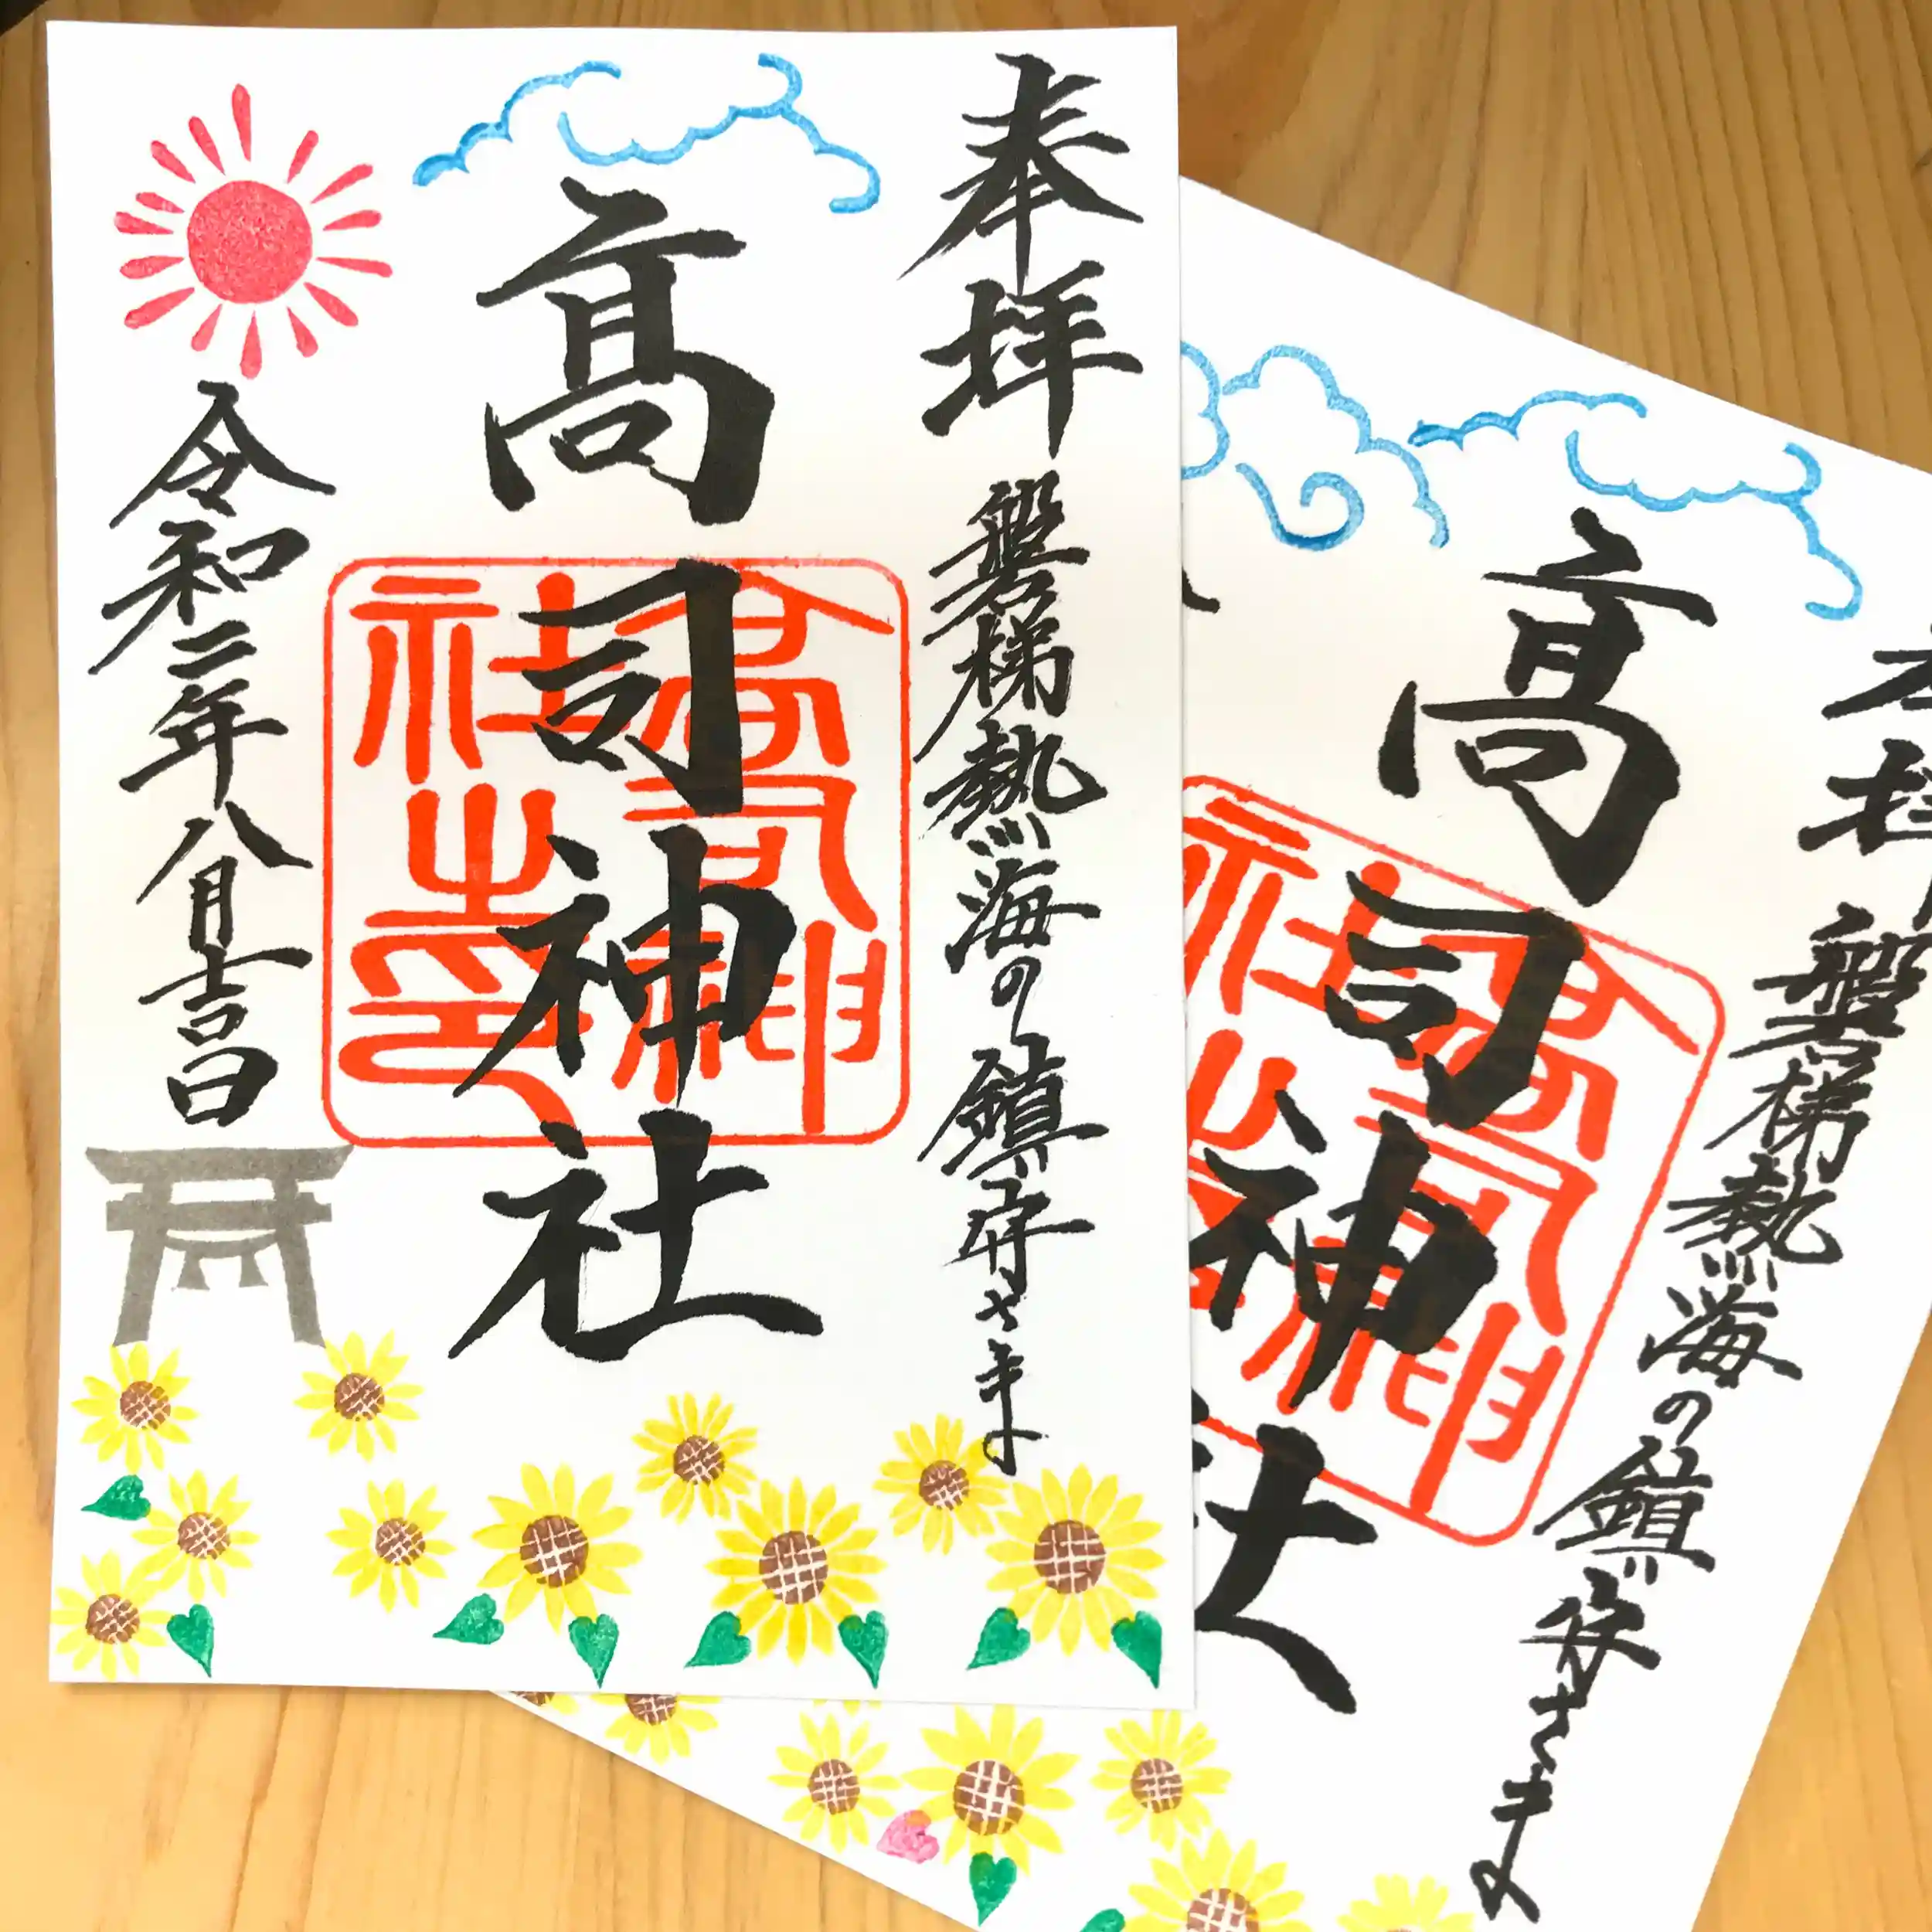 奉拝
磐梯熱海の鎮守さま
髙司神社
高司神社之印
令和二年八月吉日
磐梯熱海の鎮守さま
髙司神社